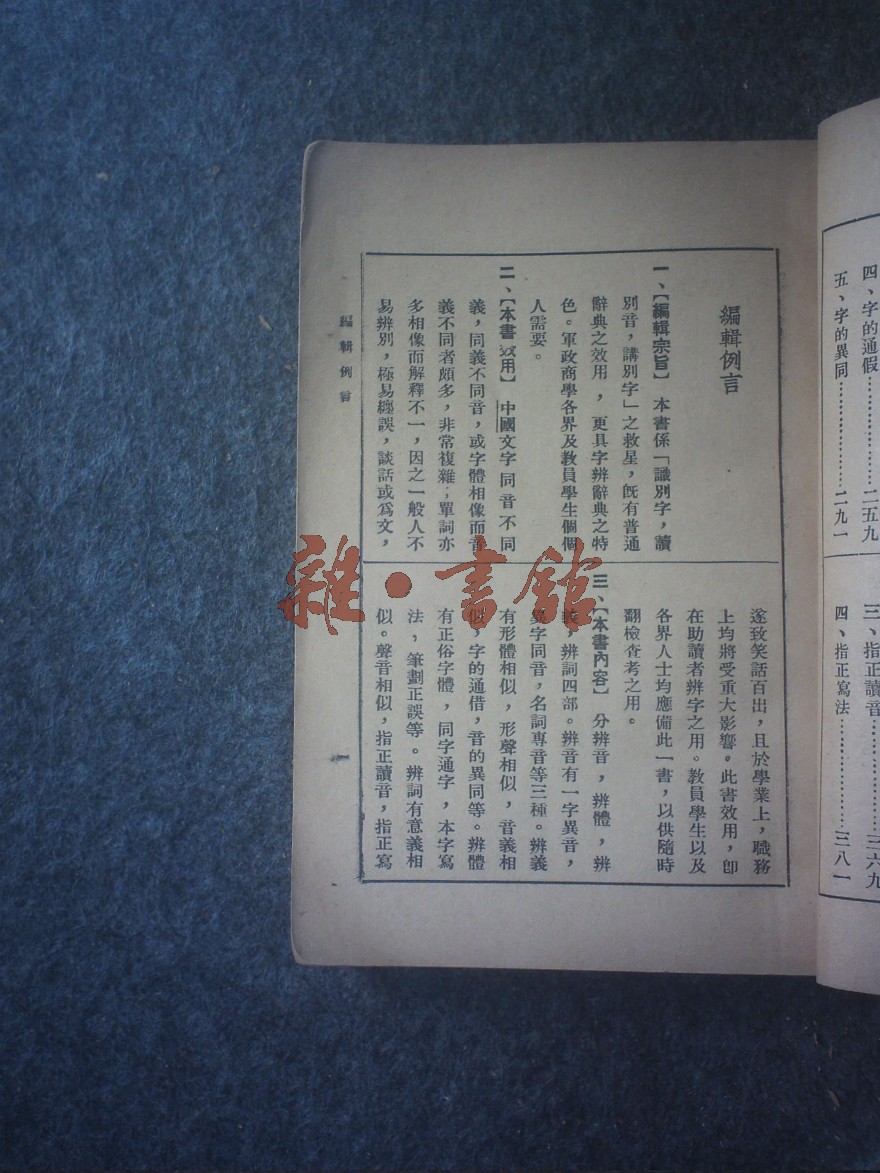 四、字的通假………………二五九
五、字的異同………………二九一
三、指正讀音………………三六九
四、指正寫法………………三八一
編輯例言
一、【編輯宗旨】 本書係「識別字，讀
別音，講別字」之救星，既有普通
辭典之效用，更具字辨辭典之特
色。軍政商學各界及教員學生個個
人需要。
二、【本書效用】 中國文字同音不同
義，同義不同音，或字體相像而音
義不同者頗多，非常複雜；單詞亦
多相像而解釋不一，因之一般人不
易辨別，極易纏誤，談話或爲文，
遂致笑話百出，且於學業上，職務
上均將受重大影響。此書效用，卽
在助讀者辨字之用。教員學生以及
各界人士均應備此一書，以供隨時
翻檢查考之用。
三、【本書內容】 分辨音，辨體，辨
，辨詞四部。辨音有一字異音，
字同音，名詞專音等三種。辨義
有形體相似，形聲相似，音義相
似，字的通借，音的異同等。辨體
有正俗字體，同字通字，本字寫
法，筆劃正誤等。辨詞有意義相
似。聲音相似，指正讀音，指正寫
編輯例言
一
雜·書館